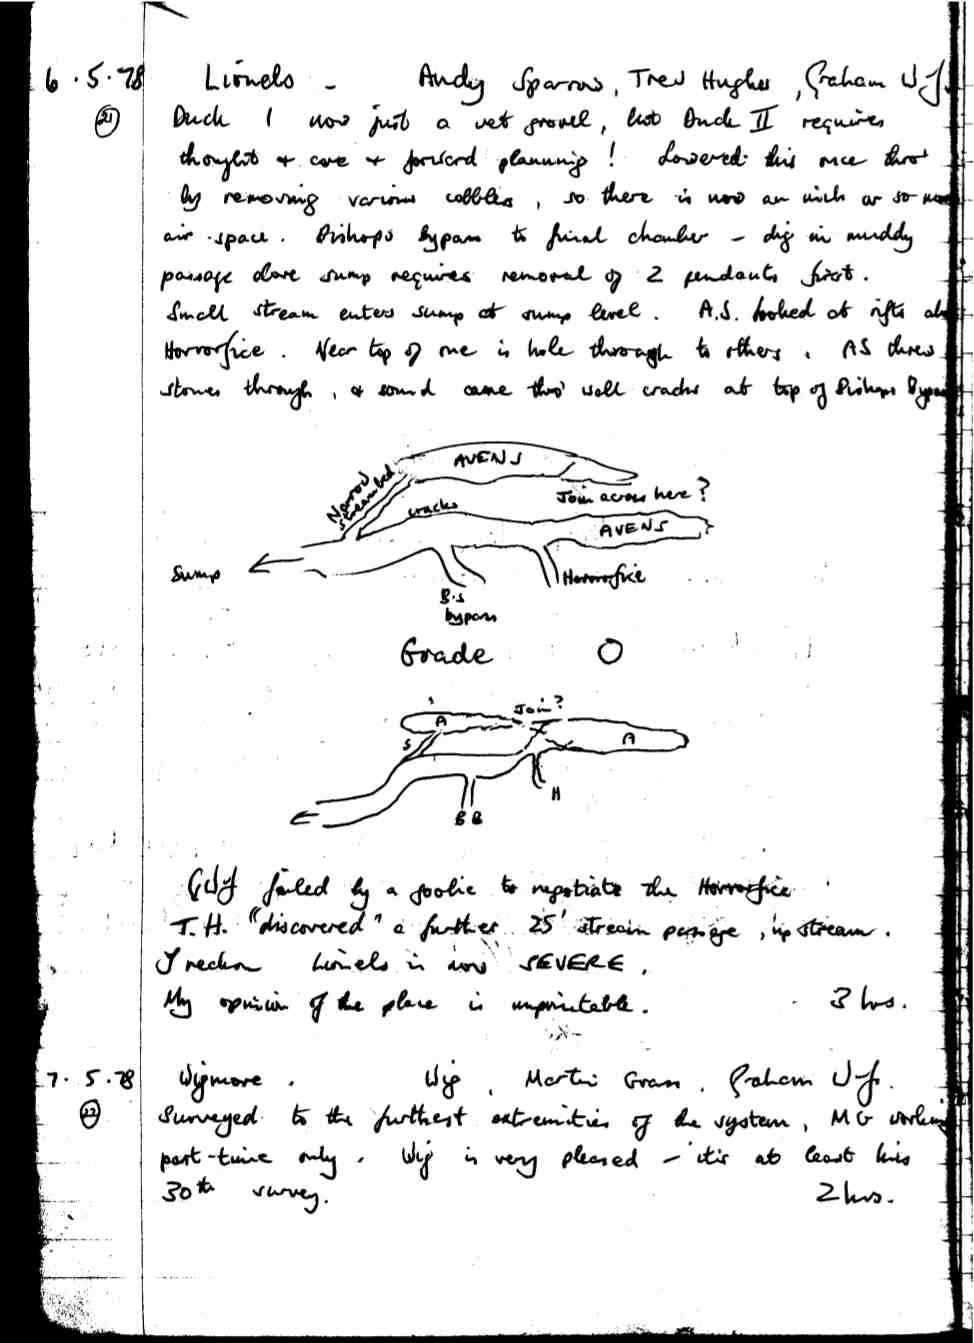 6.5.78 Lionels - Andy Sparrow, Trev Hughes, Graham W-J.
21 Duck 1 now just a wet grovel, but Duck II requires
thought + care + forward planning! Lowered this once thro'
by removing various cobbles, so there is now an inch or so more
air space. Bishops Bypass to final chamber - dig in muddy
passage above sump requires removal of 2 pendants first.
Small stream enters sump at sump level. A.S. looked at rifts
Horrorfice. Near top of one is hole through to others. AS threw
stones through, & sound came thro' wall cracks at top of Bishops Bypass
AVENS
Narrow streambed
cracks
Join across here?
AVENS
Sump
Horrorfice
B.S bypass
Grade O
Join?
A
S
A
H
B B
GWJ failed by a goolie to negotiate the Horrorfice
T.H. "discovered" a further 25' stream passage, upstream.
I reckon Lionels is now SEVERE.
My opinion of the place is unprintable. 3 hrs.
7.5.78 Wigmore. Wig, Martin Grass, Graham W-J.
22 Surveyed to the furthest extremities of the system, MG working
part-time only. Wig is very pleased - it's at least his
30th survey. 2 hrs.